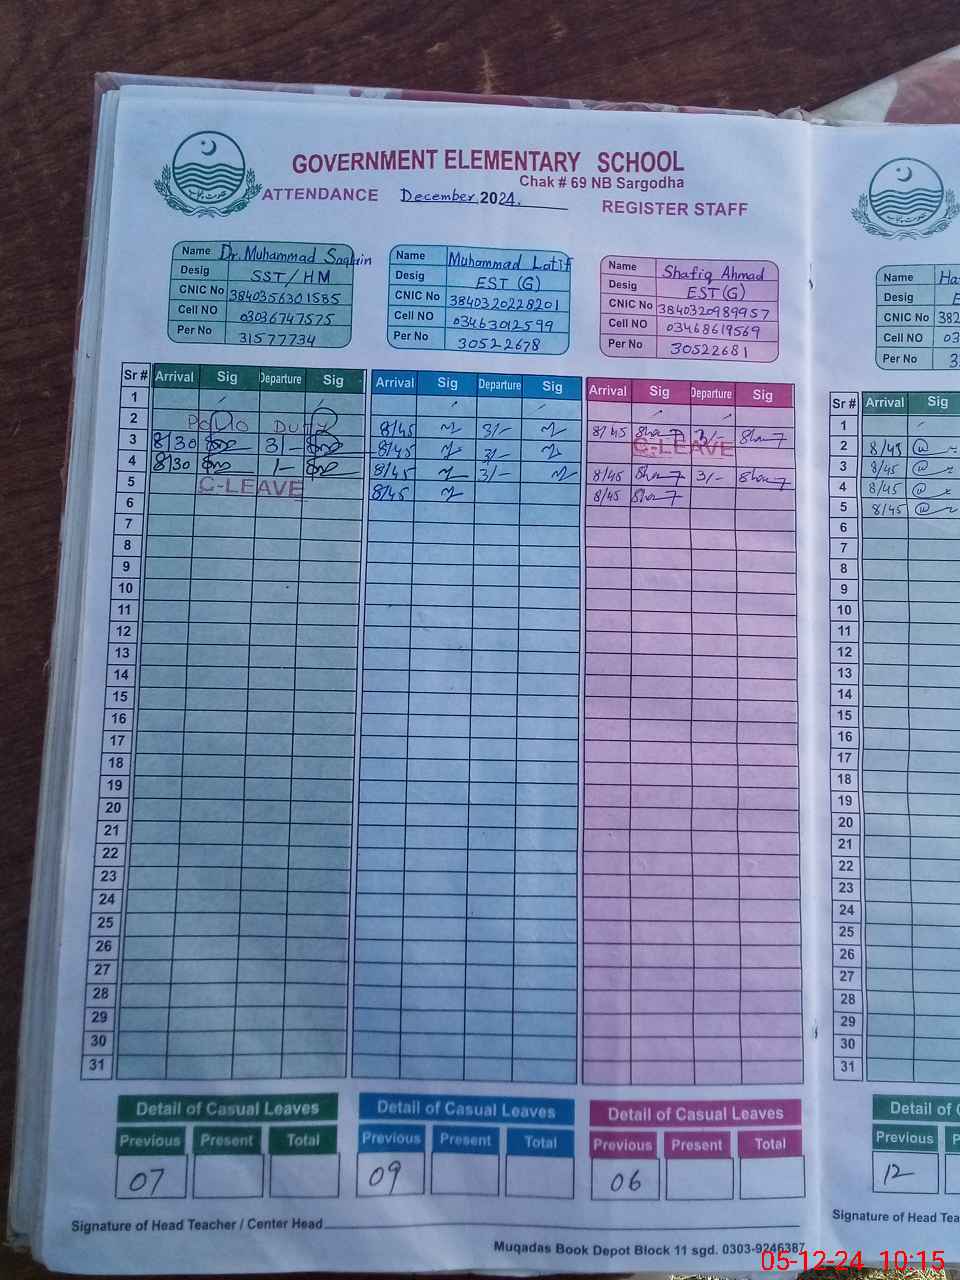 GOVERNMENT ELEMENTARY SCHOOL
Chak # 69 NB Sargodha
ATTENDANCE December, 2024. REGISTER STAFF
Name Dr. Muhammad Saqlain
Desig SST/HM
CNIC No 3840356301585
Cell NO 03036747575
Per No 31577734
Name Muhammad Latif
Desig EST (G)
CNIC No 3840320228201
Cell NO 03463012599
Per No 30522678
Name Shafiq Ahmad
Desig EST (G)
CNIC No 3840320989957
Cell NO 03468619569
Per No 30522681
Name Ha
Desig E
CNIC No 382
Cell NO 03
Per No 3
Sr # Arrival Sig Departure Sig Arrival Sig Departure Sig Arrival Sig Departure Sig Sr # Arrival Sig
1 1
2 Polio Duty 8/45 3/- 8/45 3/- 2 8/45
3 8/30 3/- 8/45 3/- C-LEAVE 3 8/45
4 8/30 1/- 8/45 3/- 8/45 3/- 4 8/45
5 C-LEAVE 8/45 8/45 5 8/45
6 6
7 7
8 8
9 9
10 10
11 11
12 12
13 13
14 14
15 15
16 16
17 17
18 18
19 19
20 20
21 21
22 22
23 23
24 24
25 25
26 26
27 27
28 28
29 29
30 30
31 31
Detail of Casual Leaves Detail of Casual Leaves Detail of Casual Leaves Detail of C
Previous Present Total Previous Present Total Previous Present Total Previous P
07 09 06 12
Signature of Head Teacher / Center Head Signature of Head Tea
Muqadas Book Depot Block 11 sgd. 0303-9246387
05-12-24 10:15